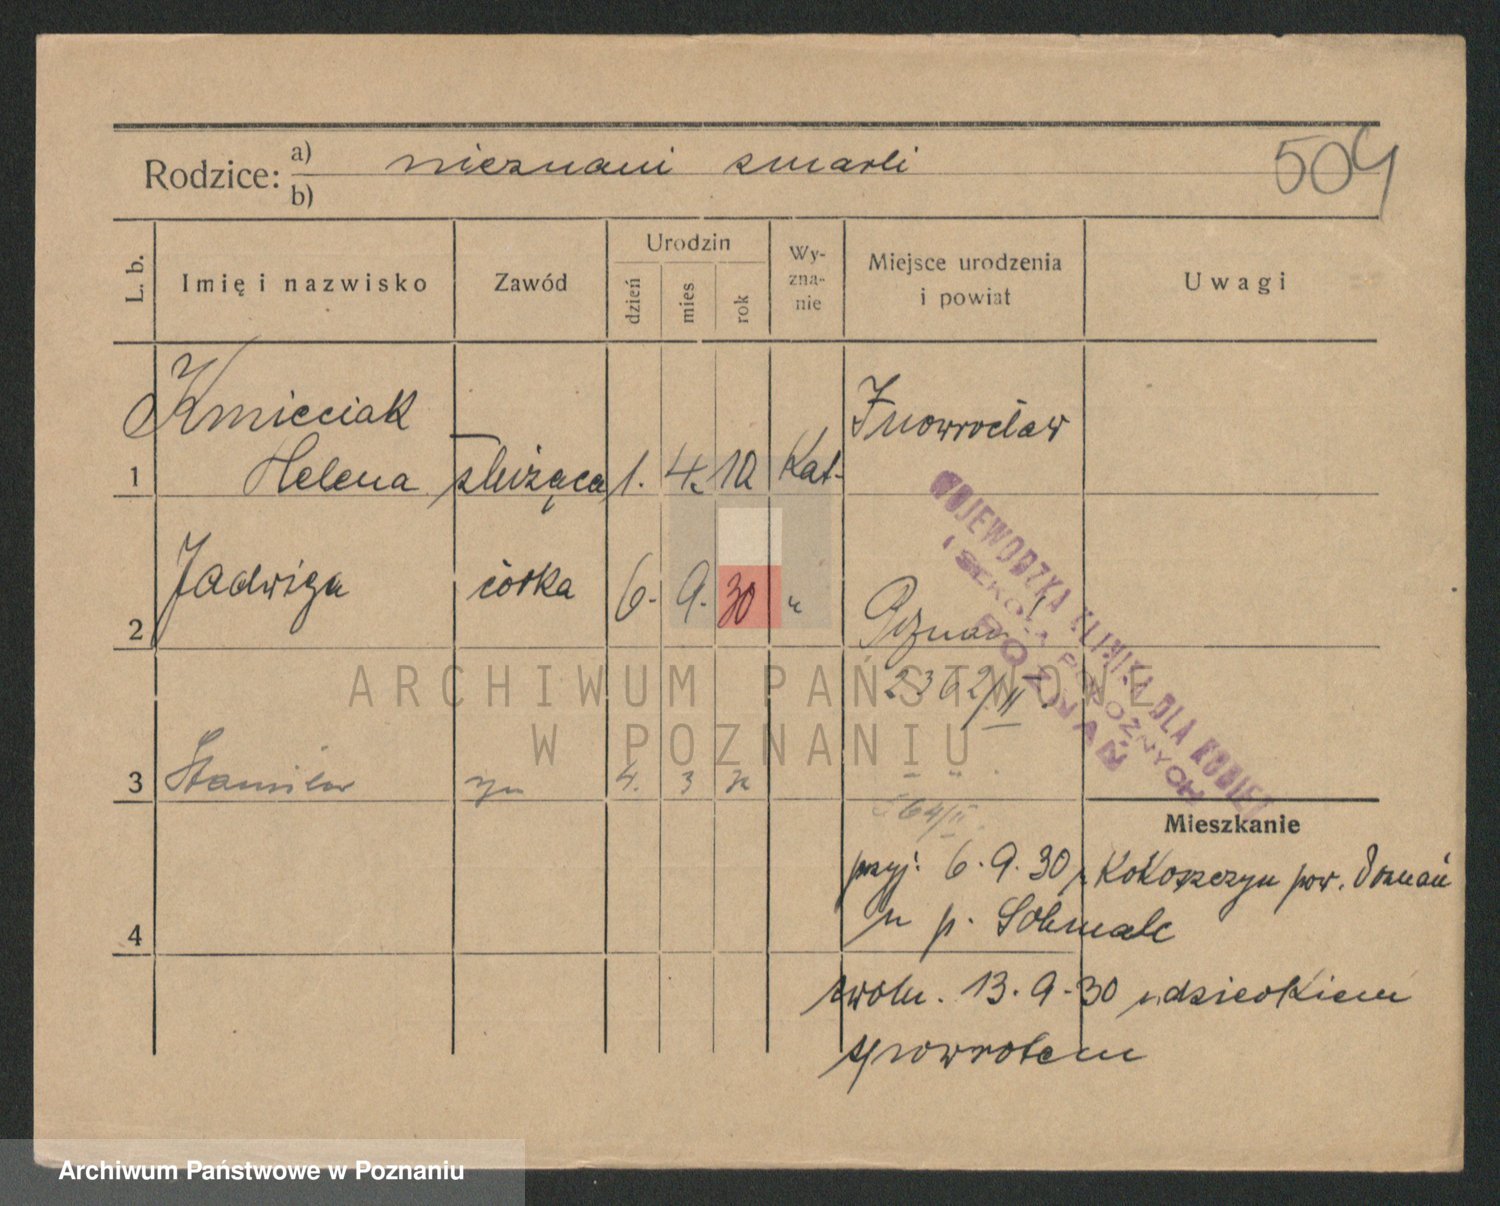 504
Rodzice: a) nieznani zmarli
b)
L. b. Imię i nazwisko Zawód Urodzin dzień mies rok Wy-zna-nie Miejsce urodzenia i powiat Uwagi
Kmieciak Inowrocław
1 Helena służąca 1. 4. 10 Kat.
2 Jadwiga córka 6. 9. 30 " Poznań
2362/II.
3 Stanisław syn 4. 3 – " .
64/II.
WOJEWÓDZKA KLINIKA DLA KOBIET
I SZKOŁA POŁOŻNYCH
POZNAŃ
Mieszkanie
przyj. 6. 9. 30 z Kokoszczyn pow. Poznań
4 u p.
zwoln. 13. 9. 30 z dzieckiem
spowrotem
ARCHIWUM PAŃSTWOWE
W POZNANIU
Archiwum Państwowe w Poznaniu